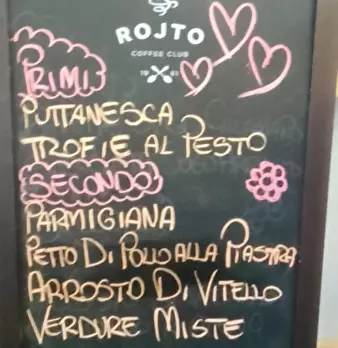 ROJTO
COFFEE CLUB
19 61
PRIMI
PUTTANESCA
TROFIE AL PESTO
SECONDO
PARMIGIANA
PETTO DI POLLO ALLA PIASTRA
ARROSTO DI VITELLO
VERDURE MISTE